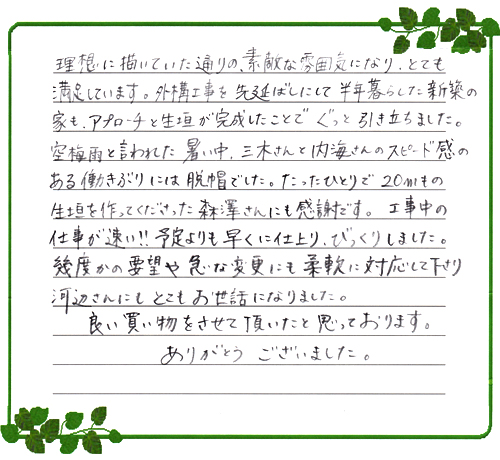 理想に描いていた通りの、素敵な雰囲気になり、とても
満足しています。外構工事を先延ばしにして半年暮らした新築の
家も、アプローチと生垣が完成したことでぐっと引き立ちました。
空梅雨と言われた暑い中、三木さんと内海さんのスピード感の
ある働きぶりには脱帽でした。たったひとりで20mもの
生垣を作ってくださった森澤さんにも感謝です。工事中の
仕事が速い!!予定よりも早くに仕上り、びっくりしました。
幾度かの要望や急な変更にも柔軟に対応して下さり
河辺さんにもとてもお世話になりました。
良い買い物をさせて頂いたと思っております。
ありがとうございました。